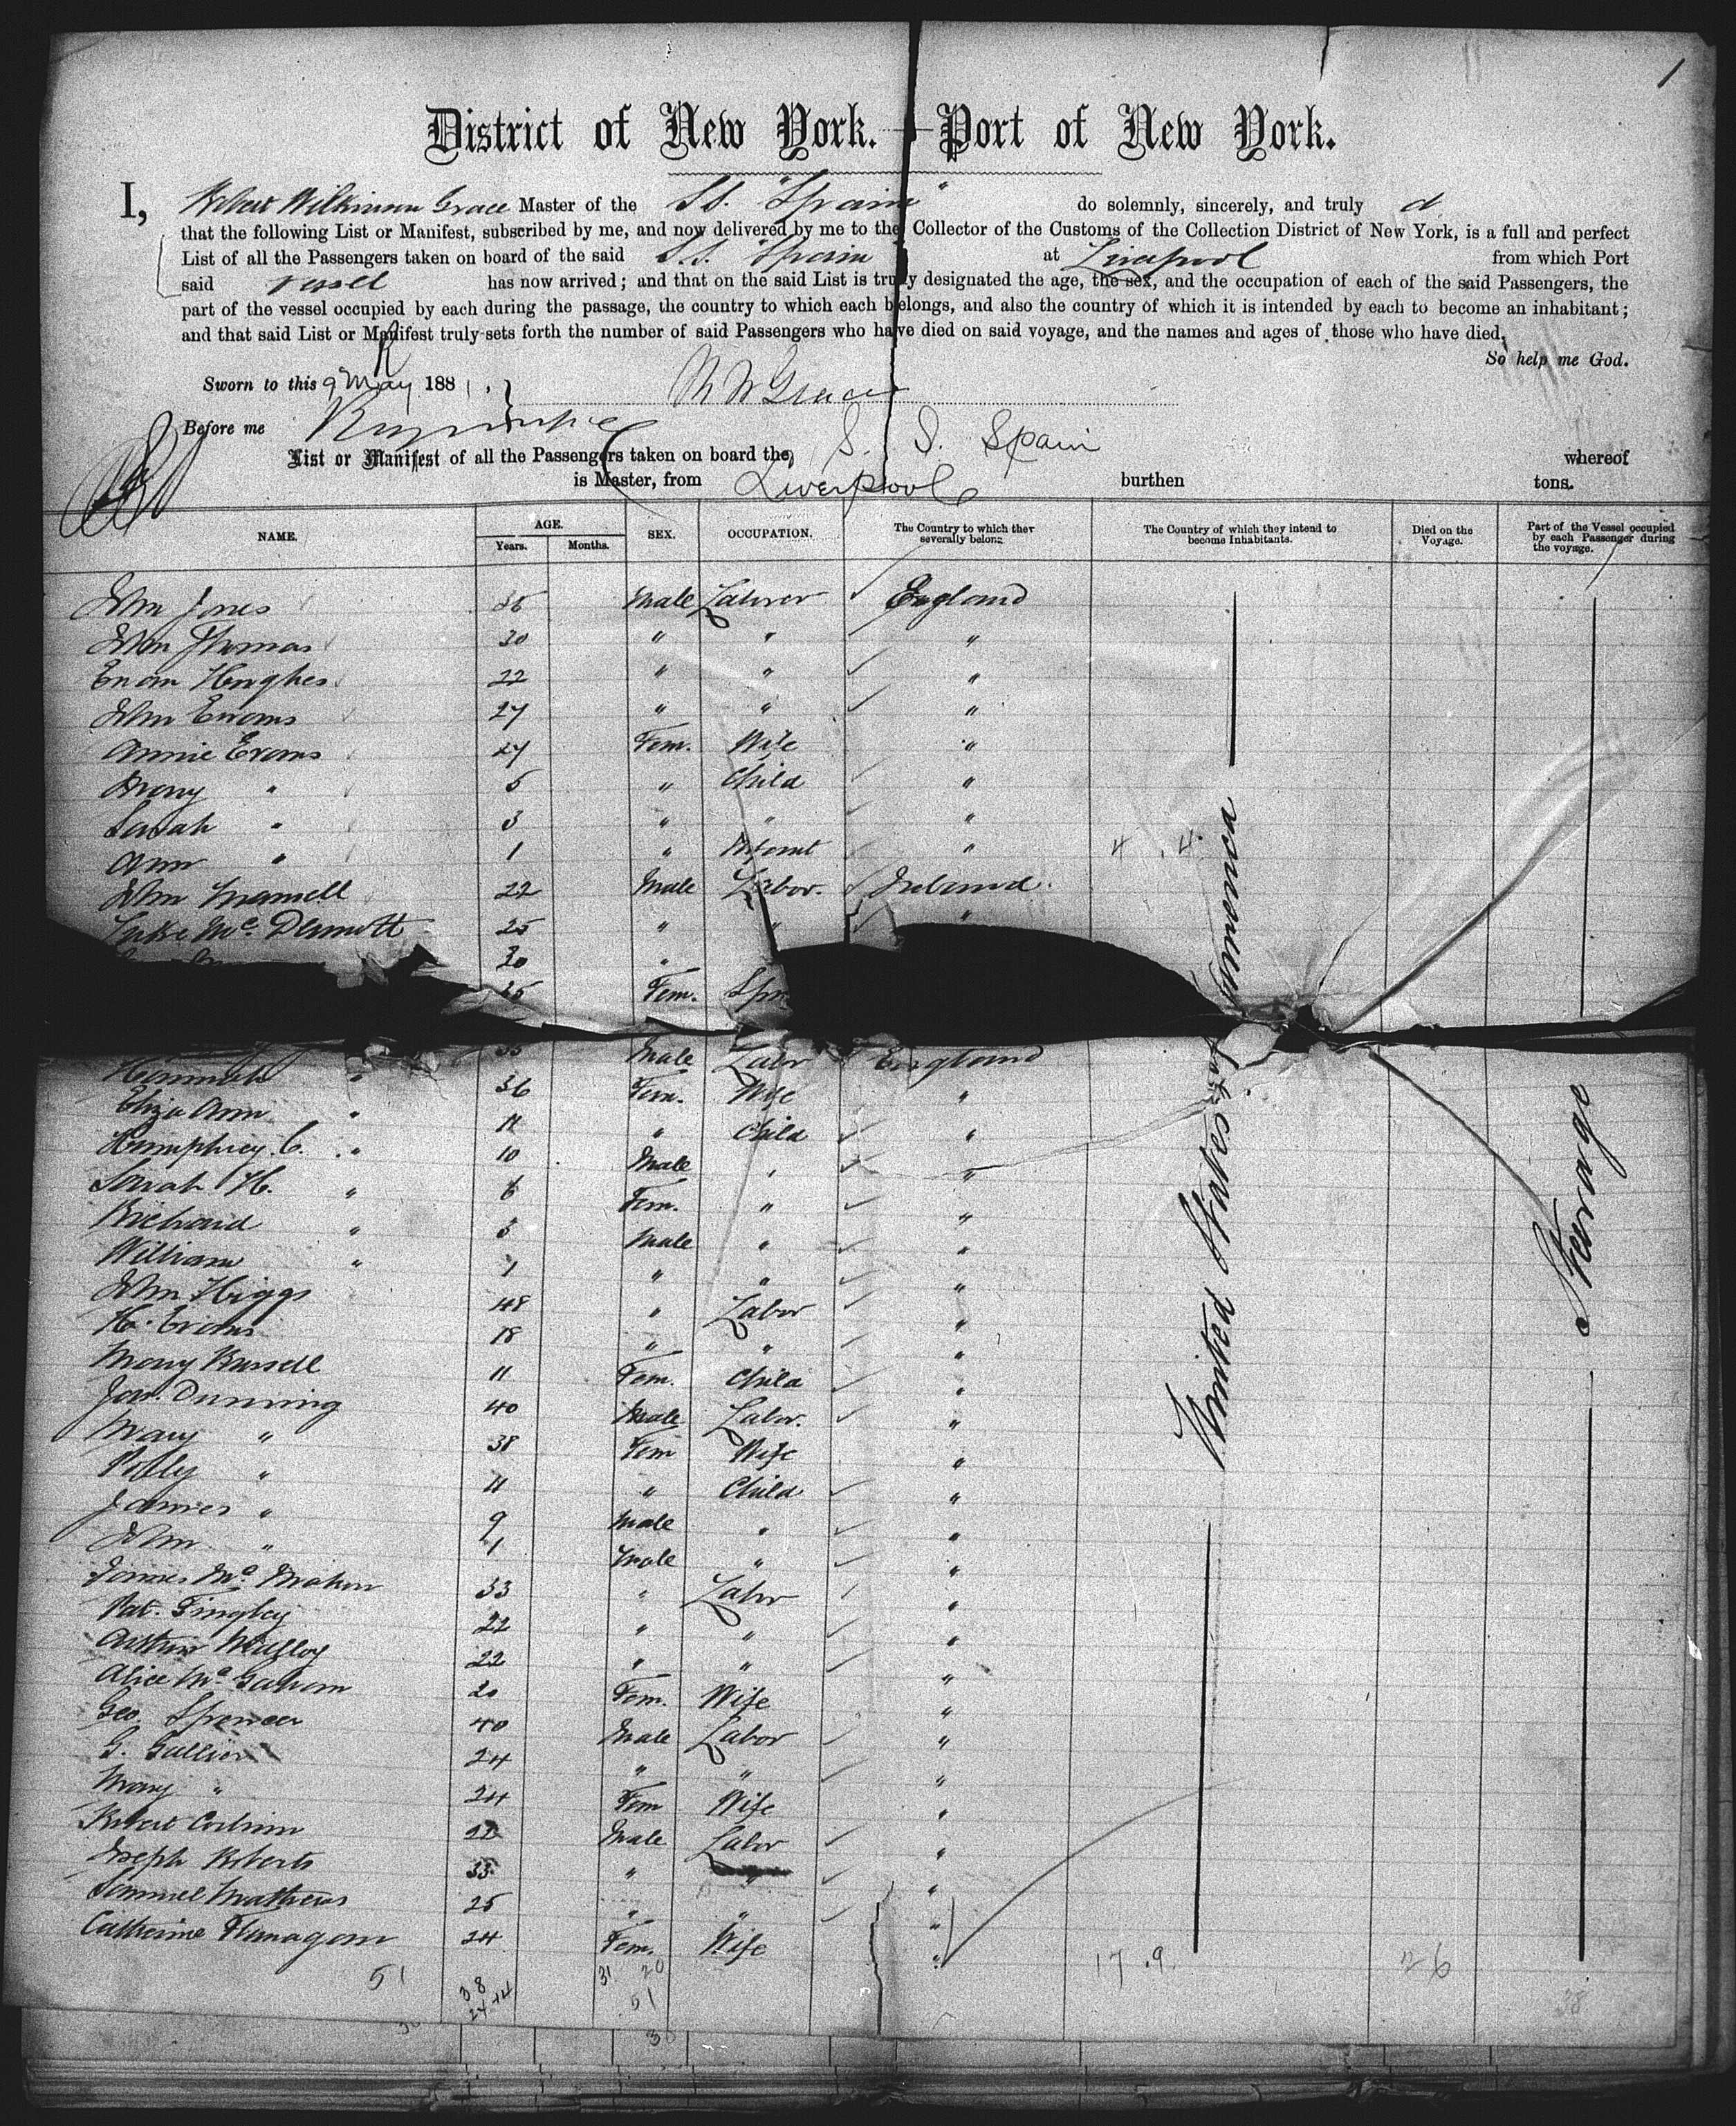 1
District of New York. Port of New York.
I, Robert Wilkinson Grace Master of the S.S. "Spain" do solemnly, sincerely, and truly
that the following List or Manifest, subscribed by me, and now delivered by me to the Collector of the Customs of the Collection District of New York, is a full and perfect
List of all the Passengers taken on board of the said S.S. "Spain" at Liverpool from which Port
said vessel has now arrived; and that on the said List is truly designated the age, the sex, and the occupation of each of the said Passengers, the
part of the vessel occupied by each during the passage, the country to which each belongs, and also the country of which it is intended by each to become an inhabitant;
and that said List or Manifest truly sets forth the number of said Passengers who have died on said voyage, and the names and ages of those who have died.
So help me God.
Sworn to this 9 May 1881. R W Grace
Before me
List or Manifest of all the Passengers taken on board the S. S. Spain whereof
is Master, from Liverpool burthen tons.
NAME. AGE. Years. Months. SEX. OCCUPATION. The Country to which they severally belong. The Country of which they intend to become Inhabitants. Died on the Voyage. Part of the Vessel occupied by each Passenger during the voyage.
John Jones Male Laborer England
John Thomas 30 " " "
Hughes 22 " " "
John Evans 27 " " "
Annie Evans 27 Fem. Wife "
Mary " 5 " Child "
Sarah " 3 " " "
Ann " 1 " Infant " 4 . 4.
John 22 Male Labor. Ireland.
Luke Mc. Dermott 25 " " "
20 "
Fem.
Male Labor England
Hannah " 36 Fem. Wife "
Eliza Ann " 11 " Child "
Humphrey C. " 10 Male " "
Sarah H. " 6 Fem. " "
Richard " Male " "
William " 1 " " "
John Higgs 48 " Labor "
H. Evans 18 " " "
Mary Russell 11 Fem. Child "
Jas. Dunning 40 Male Labor. "
Mary " 38 Fem Wife "
Polly " 11 " Child "
James " 9 Male " "
John " 1 Male " "
James Mc. Mahon 33 " Labor "
Pat. 22 " " "
Arthur 22 " " "
Alice Mc. 20 Fem. Wife "
Geo. Spencer 40 Male Labor "
G. 24 " " "
Mary " 24 Fem Wife "
Robert Male Labor "
Joseph Roberts 33 " " "
Samuel Mathews 25 " " "
Catherine Flanagan 24 Fem. Wife "
United States of America
Steerage
51 38 31 20 17 . 9. 26
24 + 14 51 38